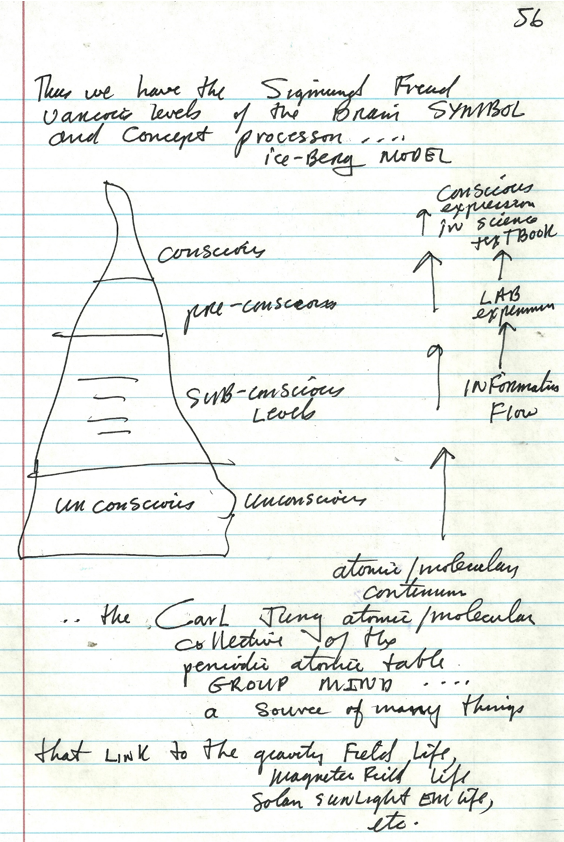 56
Thus we have the Sigmund Freud
various levels of the Brain SYMBOL
and Concept processor ....
ice-Berg MODEL
Conscious
expression
in science
textBook
conscious
LAB
pre-conscious
SUB-conscious
Levels
INFormation
Flow
unconscious
unconscious
atomic/molecular
continuum
.. the Carl Jung atomic/molecular
collective of the
periodic atomic table
GROUP MIND ....
a source of many things
that LINK to the gravity Field Life,
magnetic Field Life
Solar sunLight EM life,
etc.